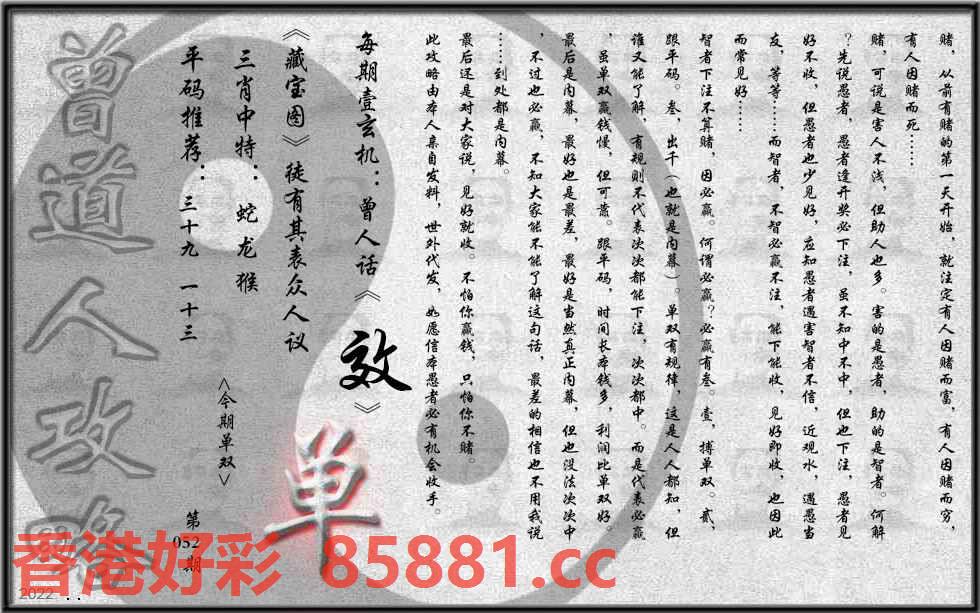 赌，从前有赌的第一天开始，就注定有人因赌而富，有人因赌而穷，
有人因赌而死……
赌，可说是害人不浅，但助人也多。害的是愚者，助的是智者。何解
？先说愚者，愚者逢开奖必下注，虽不知中不中，但也下注，愚者见
好不收，但愚者也少见好，应知愚者遇害智者不信，近观水，遇愚当
友，等等……而智者，不智必赢不注，能下能收，见好即收，也因此
而常见好……
智者下注不算赌，因必赢。何谓必赢？必赢有叁。壹，搏单双。贰，
跟平码。叁，出千（也就是内幕）。单双有规律，这是人人都知，但
谁又能了解，有规则不代表次次都能下注，次次都中。而是代表必赢
，虽单双赢钱慢，但可靠。跟平码，时间长本钱多，利润比单双好。
最后是内幕，最好也是最差，最好是当然真正内幕，但也没法次次中
，不过也必赢，不知大家能不能了解这句话，最差的相信也不用我说
……到处都是内幕。
最后还是对大家说，见好就收。不怕你赢钱，只怕你不赌。
此攻略由本人亲自发料，世外代发，如愿信本愚者必有机会收手。
每期壹玄机：曾人话《效》
《藏宝图》徒有其表众人议
三肖中特：蛇龙猴
平码推荐：三十九 一十三
<今期单双>
单
第052期
曾道人攻略
香港好彩 85881.cc
2022